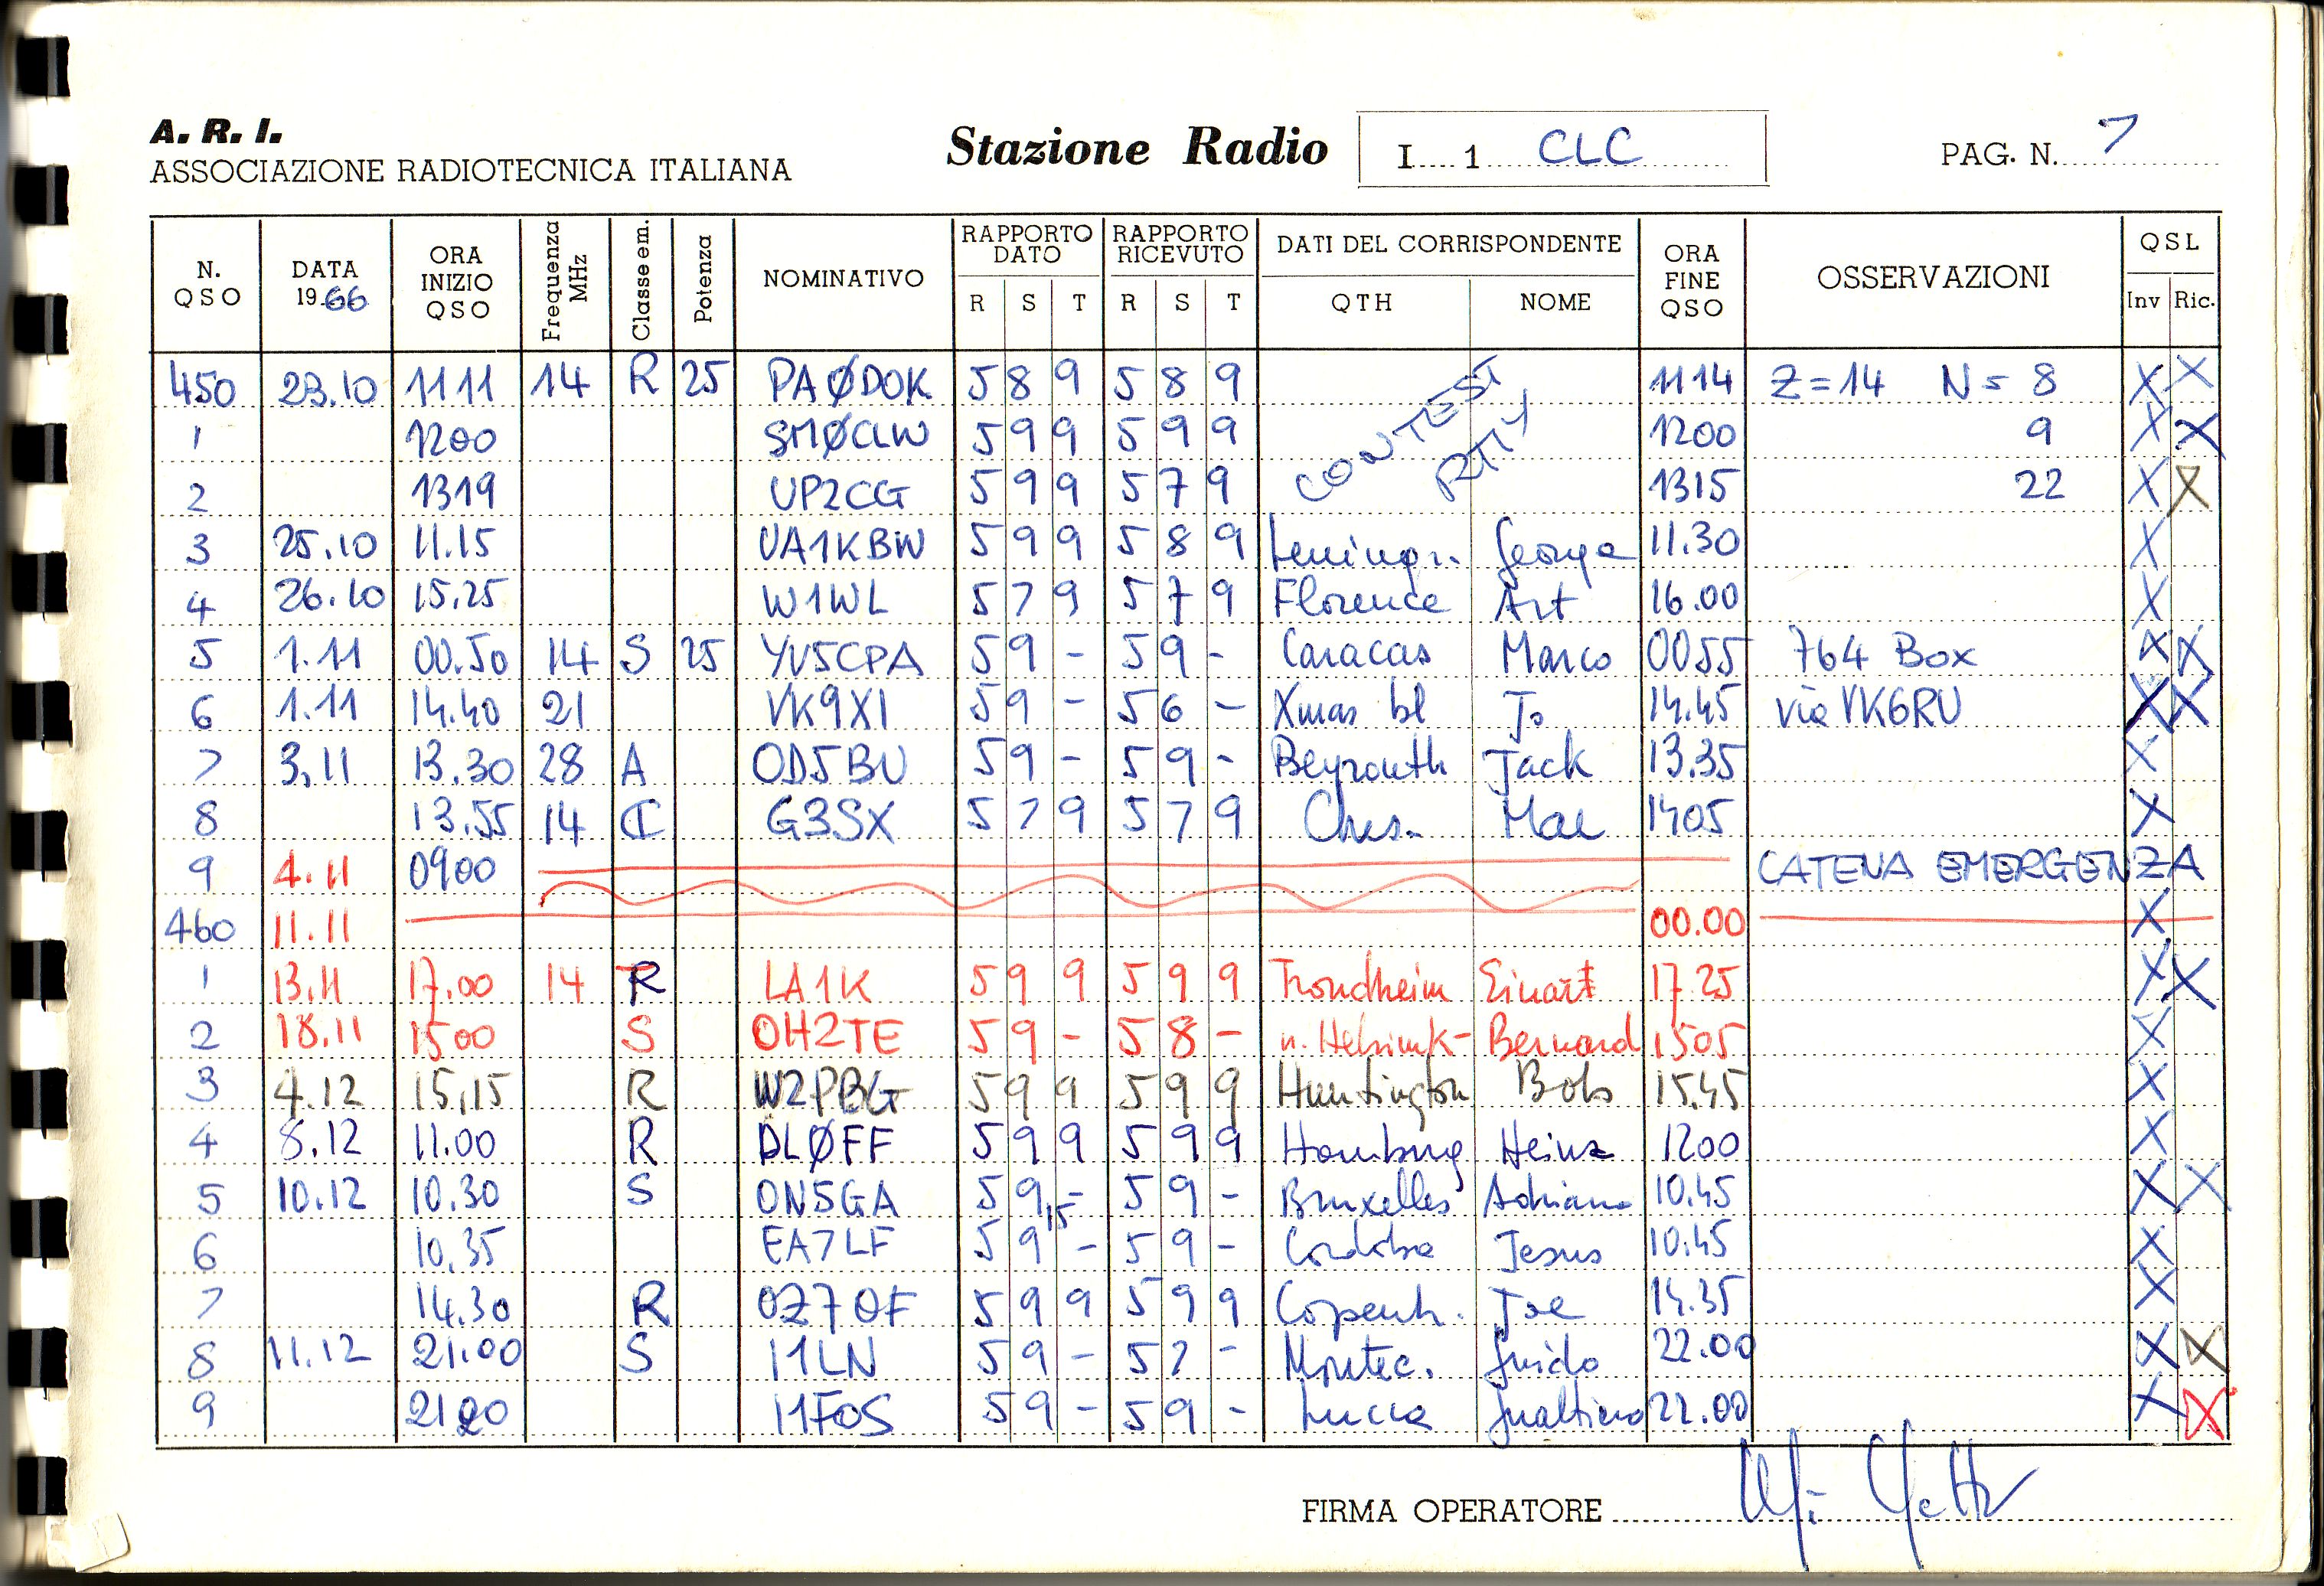 A. R. I.
ASSOCIAZIONE RADIOTECNICA ITALIANA
Stazione Radio I 1 CLC
PAG. N. 7
N. QSO DATA 1966 ORA INIZIO QSO Frequenza MHz Classe em. Potenza NOMINATIVO RAPPORTO DATO R S T RAPPORTO RICEVUTO R S T DATI DEL CORRISPONDENTE QTH NOME ORA FINE QSO OSSERVAZIONI QSL Inv Ric.
450 23.10 1111 14 R 25 PAØDOK 5 8 9 5 8 9 CONTEST RTTY 1114 Z=14 N= 8 X X
1 1200 SMØCLW 5 9 9 5 9 9 1200 9 X X
2 1319 UP2CG 5 9 9 5 7 9 1315 22 X X
3 25.10 11.15 UA1KBW 5 9 9 5 8 9 Leningr. George 11.30 X
4 26.10 15.25 W1WL 5 7 9 5 7 9 Florence Art 16.00 X
5 1.11 00.50 14 S 25 YV5CPA 5 9 - 5 9 - Caracas Marco 0055 764 Box X X
6 1.11 14.40 21 VK9XI 5 9 - 5 6 - Xmas Jo 14.45 via VK6RU X X
7 3.11 13.30 28 A OD5BU 5 9 - 5 9 - Beyrouth Jack 13.35 X
8 13.55 14 G3SX 5 7 9 5 7 9 Ches. Mae 1405 X
9 4.11 0900 CATENA EMERGENZA
460 11.11 00.00 X
1 13.11 17.00 14 R LA1K 5 9 9 5 9 9 Trondheim Einart 17.25 X X
2 18.11 1500 S OH2TE 5 9 - 5 8 - n. Helsink- Bernard 1505 X
3 4.12 15.15 R W2PBG 5 9 9 5 9 9 Huntington Bob 15.45 X
4 8.12 11.00 R DLØFF 5 9 9 5 9 9 Hamburg Heinz 1200 X
5 10.12 10.30 S ON5GA 5 9 - 5 9 - Bruxelles Adriano 10.45 X X
6 10.35 EA7LF 5 9 15 - 5 9 - Cordoba Jesus 10.45 X
7 14.30 R OZ7OF 5 9 9 5 9 9 Copenh. Joe 14.35 X
8 11.12 21.00 S I1LN 5 9 - 5 7 - Montec. Guido 22.00 X X
9 2120 I1FOS 5 9 - 5 9 - Lucca Gualtiero 22.00 X X
FIRMA OPERATORE